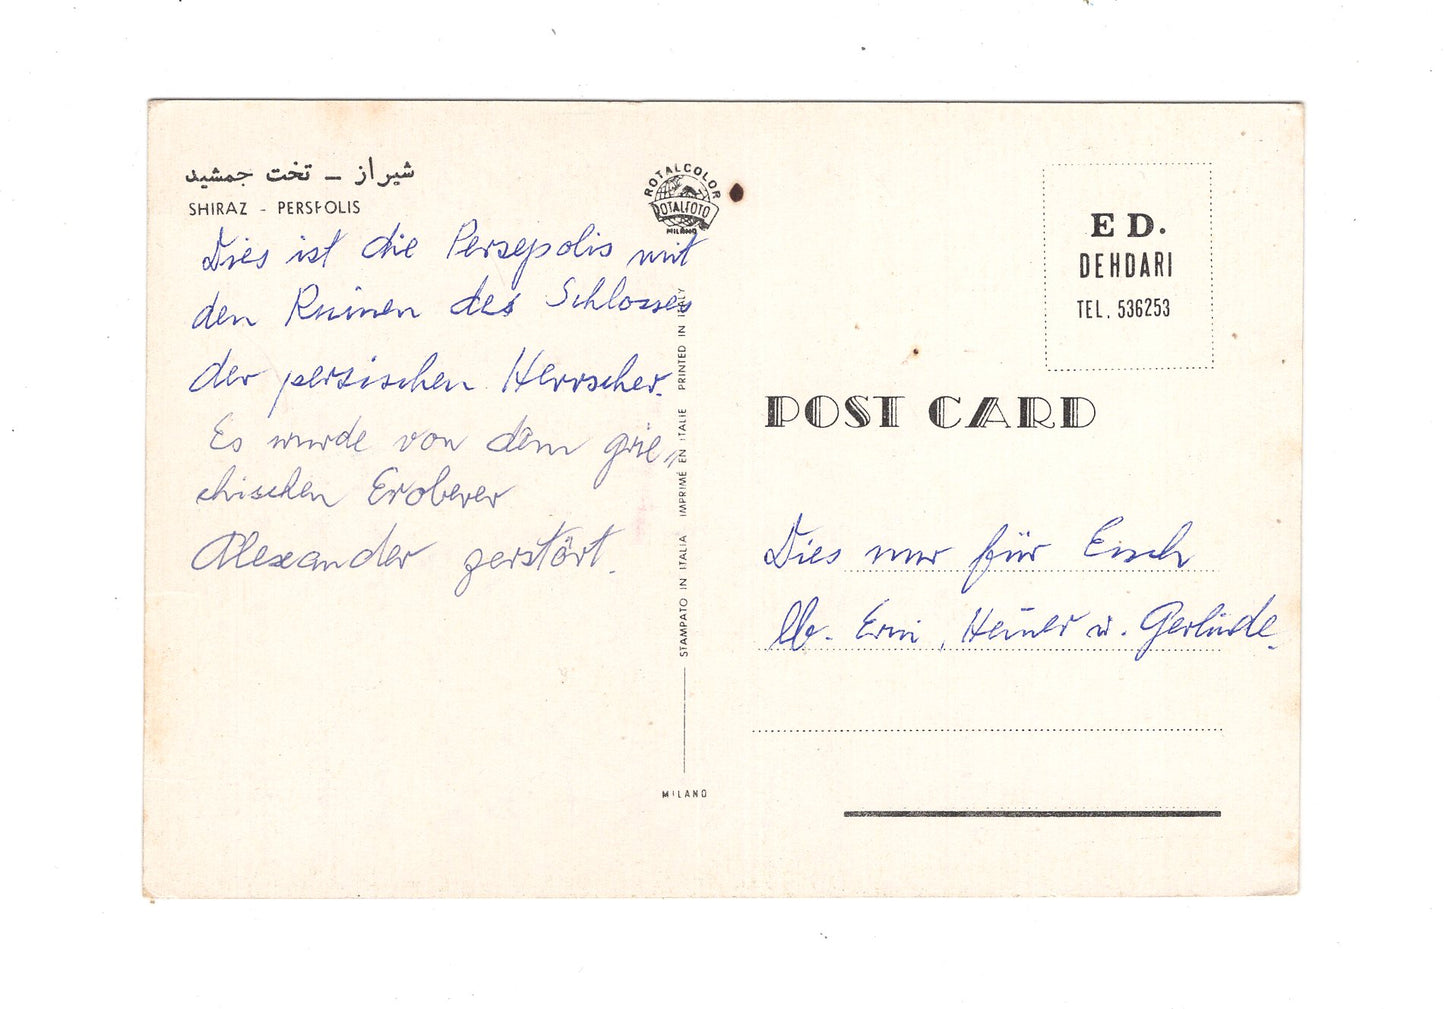 شیراز – تخت جمشید
SHIRAZ - PERSPOLIS
Dies ist die Persepolis mit
den Ruinen des Schlosses
der persischen Herrscher.
Es wurde von dem grie„
chischen Eroberer
Alexander zerstört.
ROTALCOLOR
ROTALFOTO
MILANO
STAMPATO IN ITALIA IMPRIMÉ EN ITALIE PRINTED IN ITALY
MILANO
ED.
DEHDARI
TEL. 536253
POST CARD
Dies nur für Euch
lb. Erni, Heiner u. Gerlinde.